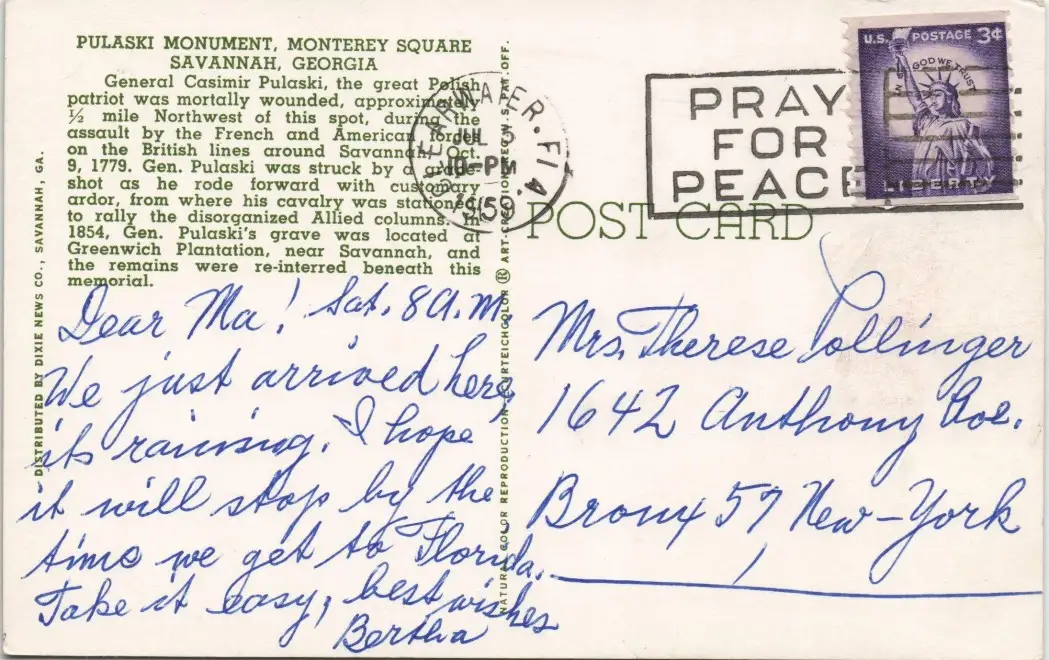 PULASKI MONUMENT, MONTEREY SQUARE
SAVANNAH, GEORGIA
General Casimir Pulaski, the great Polish
patriot was mortally wounded, approximately
½ mile Northwest of this spot, during the
assault by the French and American forces
on the British lines around Savannah, Oct.
9, 1779. Gen. Pulaski was struck by a grape
shot as he rode forward with customary
ardor, from where his cavalry was stationed
to rally the disorganized Allied columns. In
1854, Gen. Pulaski's grave was located at
Greenwich Plantation, near Savannah, and
the remains were re-interred beneath this
memorial.
DISTRIBUTED BY DIXIE NEWS CO., SAVANNAH, GA.
Dear Ma! Sat. 8 A.M.
We just arrived here,
its raining. I hope
it will stop by the
time we get to Florida.
Take it easy, best wishes
Bertha
NATURAL COLOR REPRODUCTION CURTEICHCOLOR ® ART-CREATION REG. U.S. PAT. OFF.
CLEARWATER. FLA.
JUL
10-PM
1959
PRAY
FOR
PEACE
U.S. POSTAGE 3¢
IN GOD WE TRUST
LIBERTY
POST CARD
Mrs. Therese Pollinger
1642 Anthony Ave.
Bronx 57 New-York